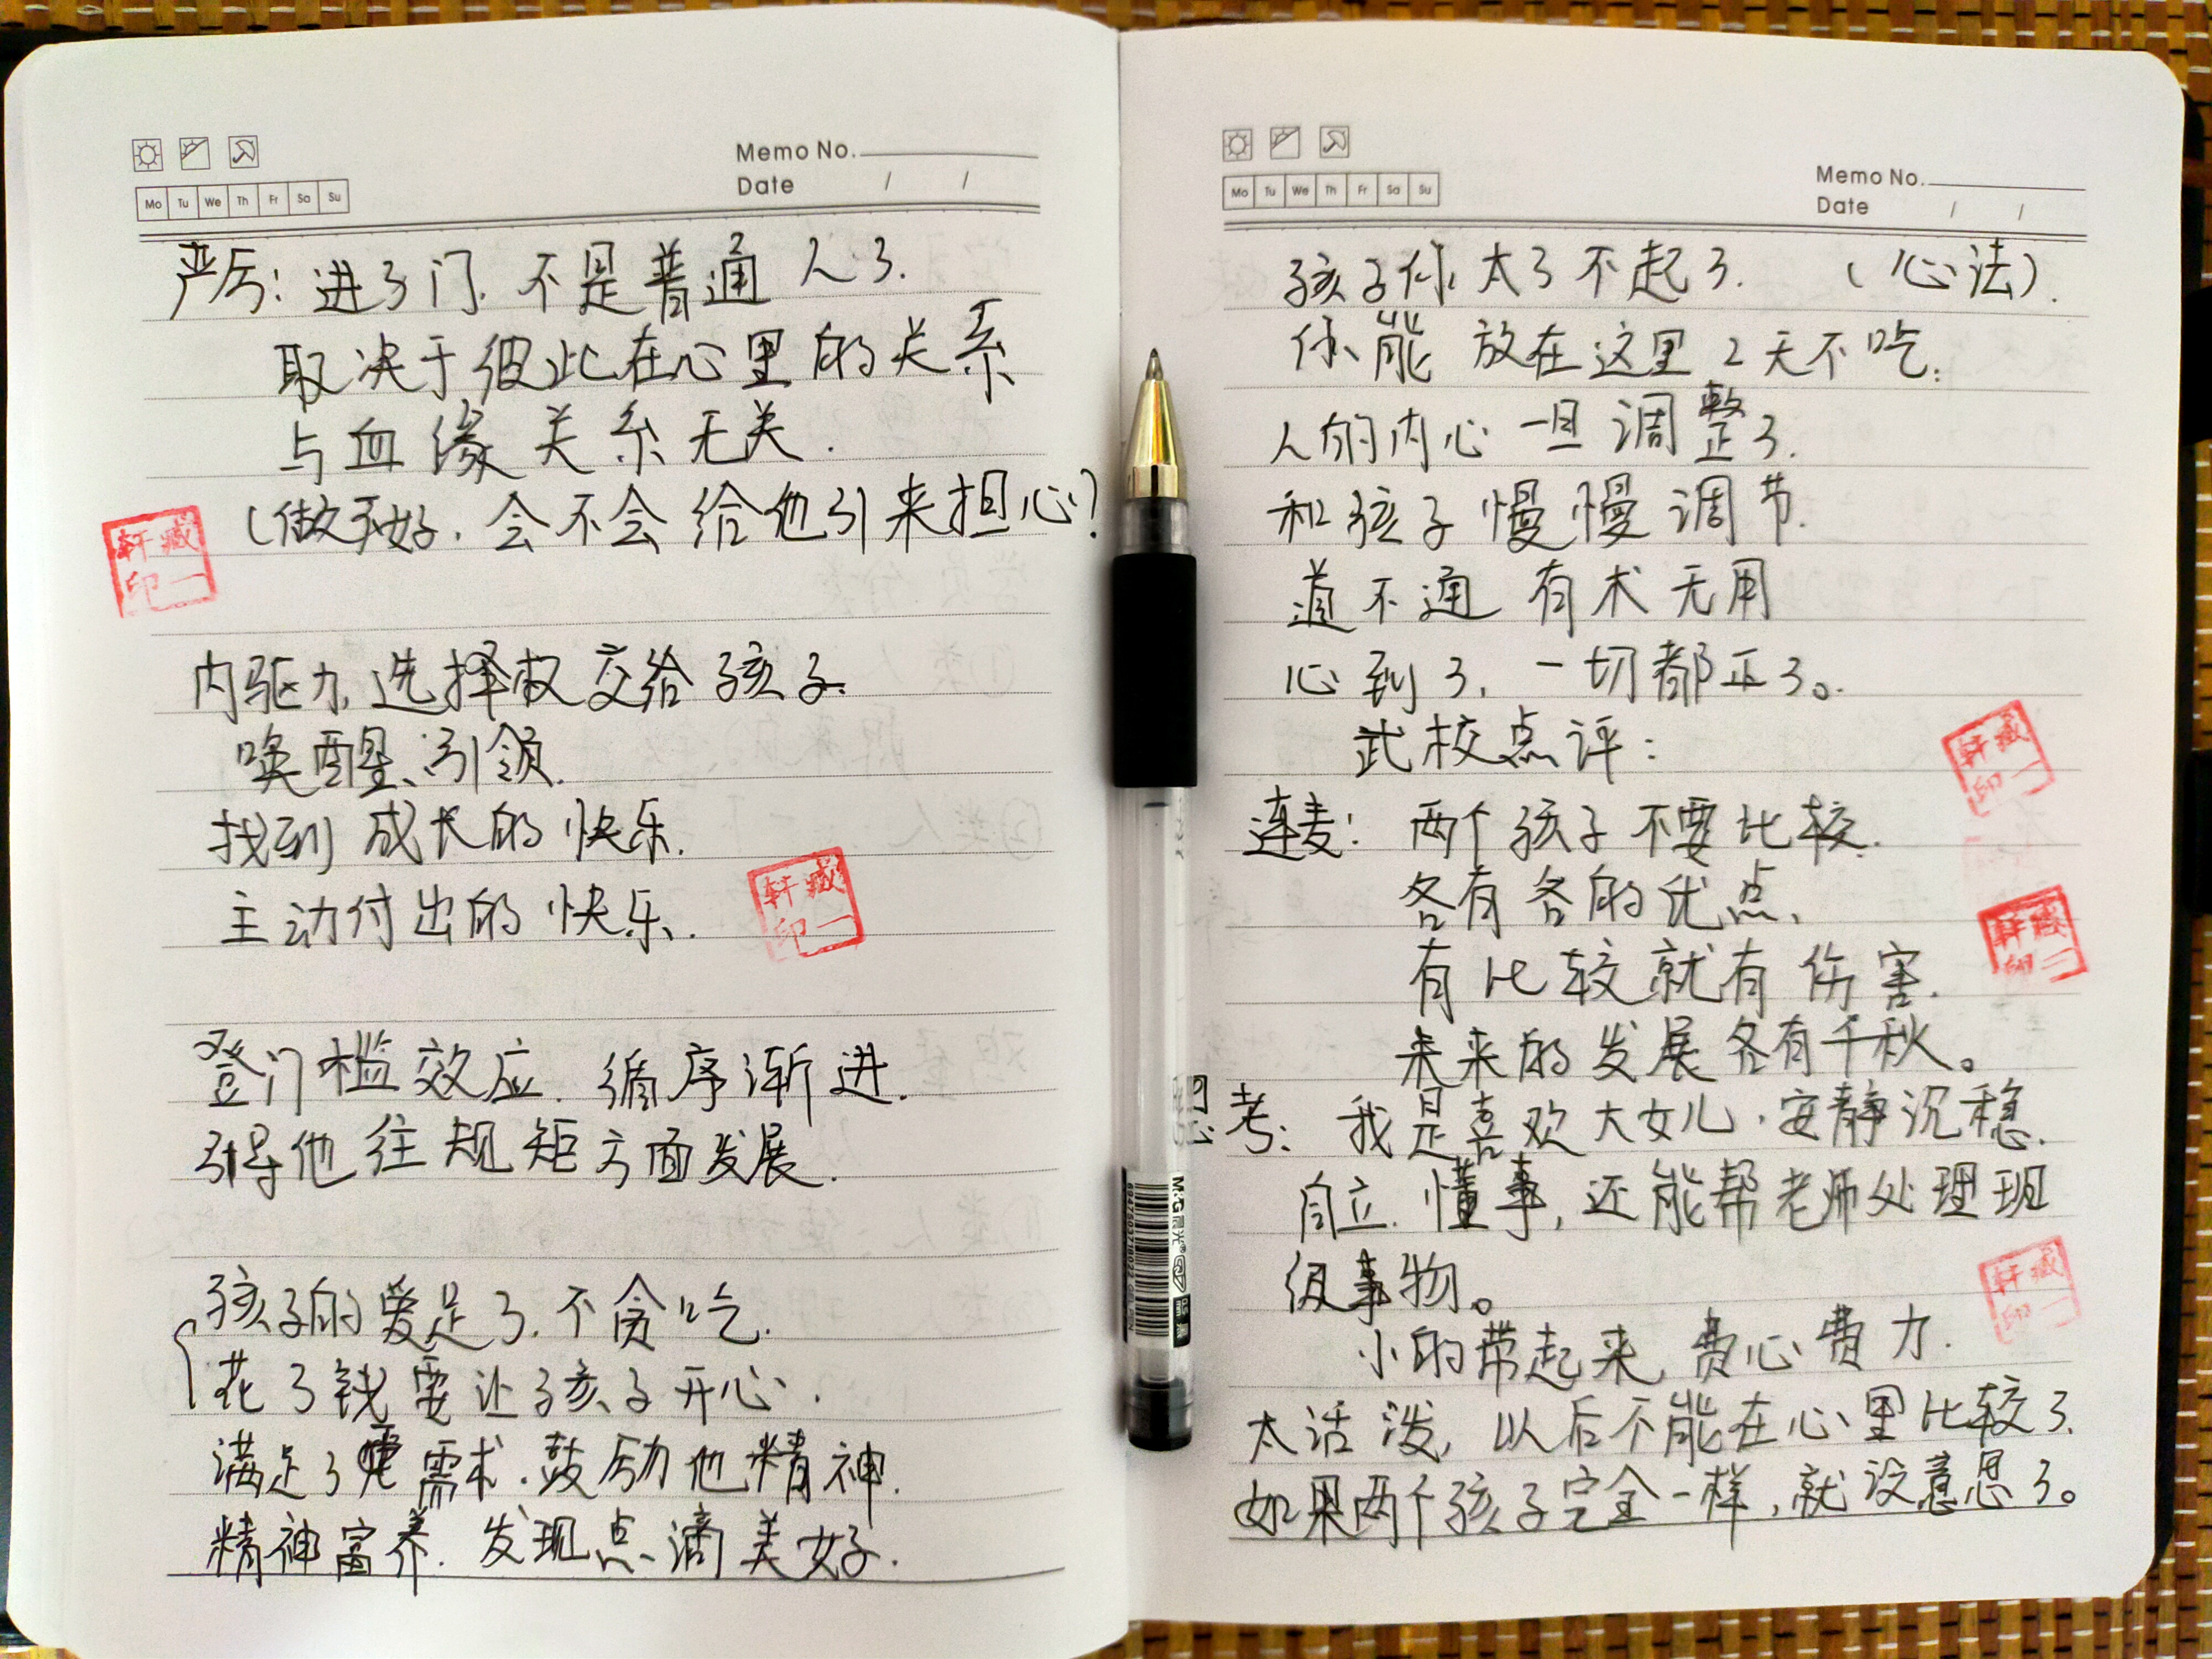 Memo No.
Date / /
Mo Tu We Th Fr Sa Su
严厉：进了门.不是普通人了.
取决于彼此在心里的关系
与血缘关系无关.
(做不好.会不会给他引来担心?
轩藏
印一
内驱力,选择权交给孩子.
唤醒、引领.
找到成长的快乐.
主动付出的快乐.
轩藏
印一
登门槛效应.循序渐进.
引导他往规矩方面发展.
孩子的爱足了.不贪吃.
花了钱要让孩子开心.
满足了需求.鼓励他精神.
精神富养.发现点滴美好.
Memo No.
Date / /
Mo Tu We Th Fr Sa Su
孩子你太了不起了.（心法）.
你能放在这里2天不吃.
人的内心一旦调整了.
和孩子慢慢调节.
道不通有术无用
心到了,一切都正了。
武校点评：
轩藏
印一
连麦：两个孩子不要比较.
各有各的优点、
轩藏
印一
有比较就有伤害.
未来的发展各有千秋。
思考：我是喜欢大女儿.安静沉稳.
自立.懂事,还能帮老师处理班
级事物。
轩藏
印一
小的带起来,费心费力.
太活泼,以后不能在心里比较了.
如果两个孩子完全一样,就没意思了。
M&G 晨光
0.5mm 黑